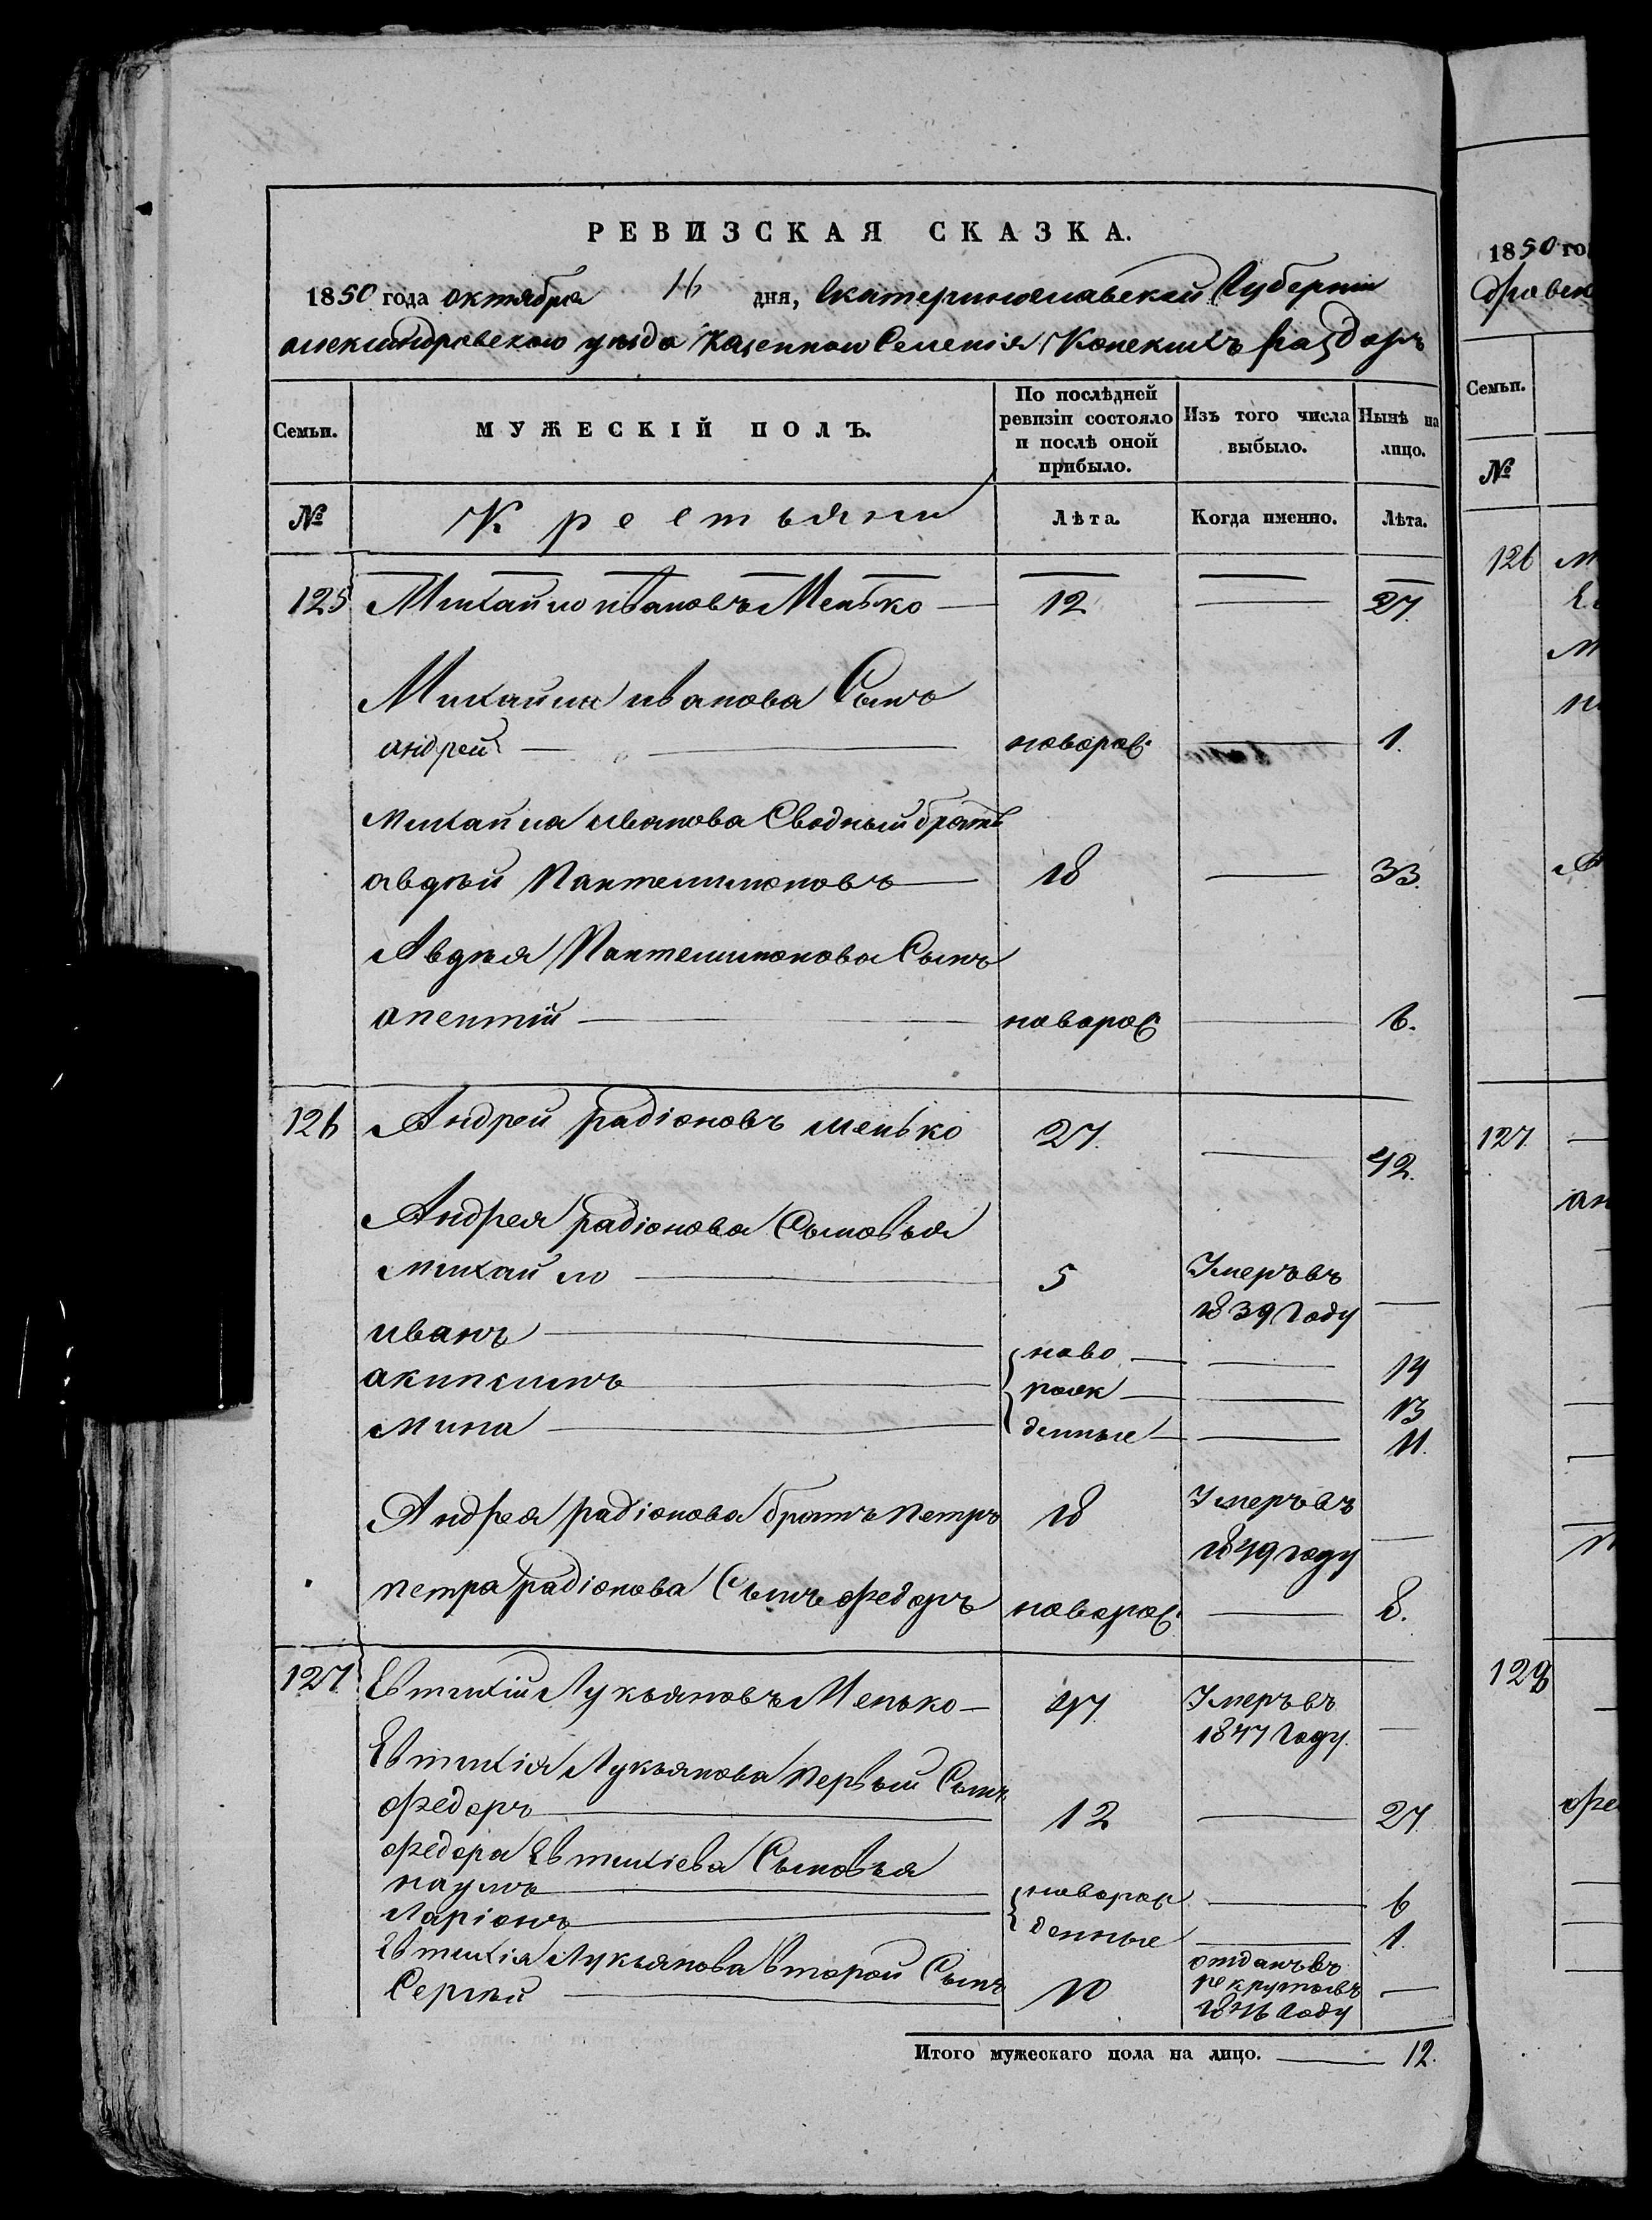 РЕВИЗСКАЯ СКАЗКА.
1850 года октября 16 дня, Екатеринославской Губернии
александровского уѣзда Казенного Селения Конских раздоръ
Семьи. МУЖЕСКІЙ ПОЛЪ. По послѣдней ревизіи состояло и послѣ оной прибыло. Изъ того числа выбыло. Нынѣ на лицо.
№ Крестьяни Лѣта. Когда именно. Лѣта.
125 Михайло ивановъ Менько — 12 — 27.
Михайла иванова Сынъ
андрей — новорож — 1.
михайла иванова Сводный братъ
авдѣй Пантелимоновъ — 18 — 33.
Авдѣя Пантелимонова Сынъ
опентій — новорож — 6.
126 Андрей радіоновъ менько 27. — 42.
Андрея радіонова Сыновья
михайло — 5 Умеръ въ
1839 Году —
иванъ — ново — 14
акинъ — рож — 13
мина — денные — 11.
Андрея радіонова братъ петръ 18 Умеръ въ
1849 году —
петра радіонова Сынъ федоръ новорож — 8.
127 Евтихій Лукьяновъ Менько — 47. Умеръ въ
1847 Году. —
Евтихія Лукьянова первый Сынъ
федоръ — 12 — 27.
федора Евтихіева Сыновья
наумъ — новорож — 6
Ларіонъ — денные — 1.
Евтихія Лукьянова Второй Сынъ отданъ въ
Сергѣй — 10 рекруты въ —
1846 Году
Итого мужескаго пола на лицо. — 12.
1850 го
дровск
Семьи.
№
126
127.
129